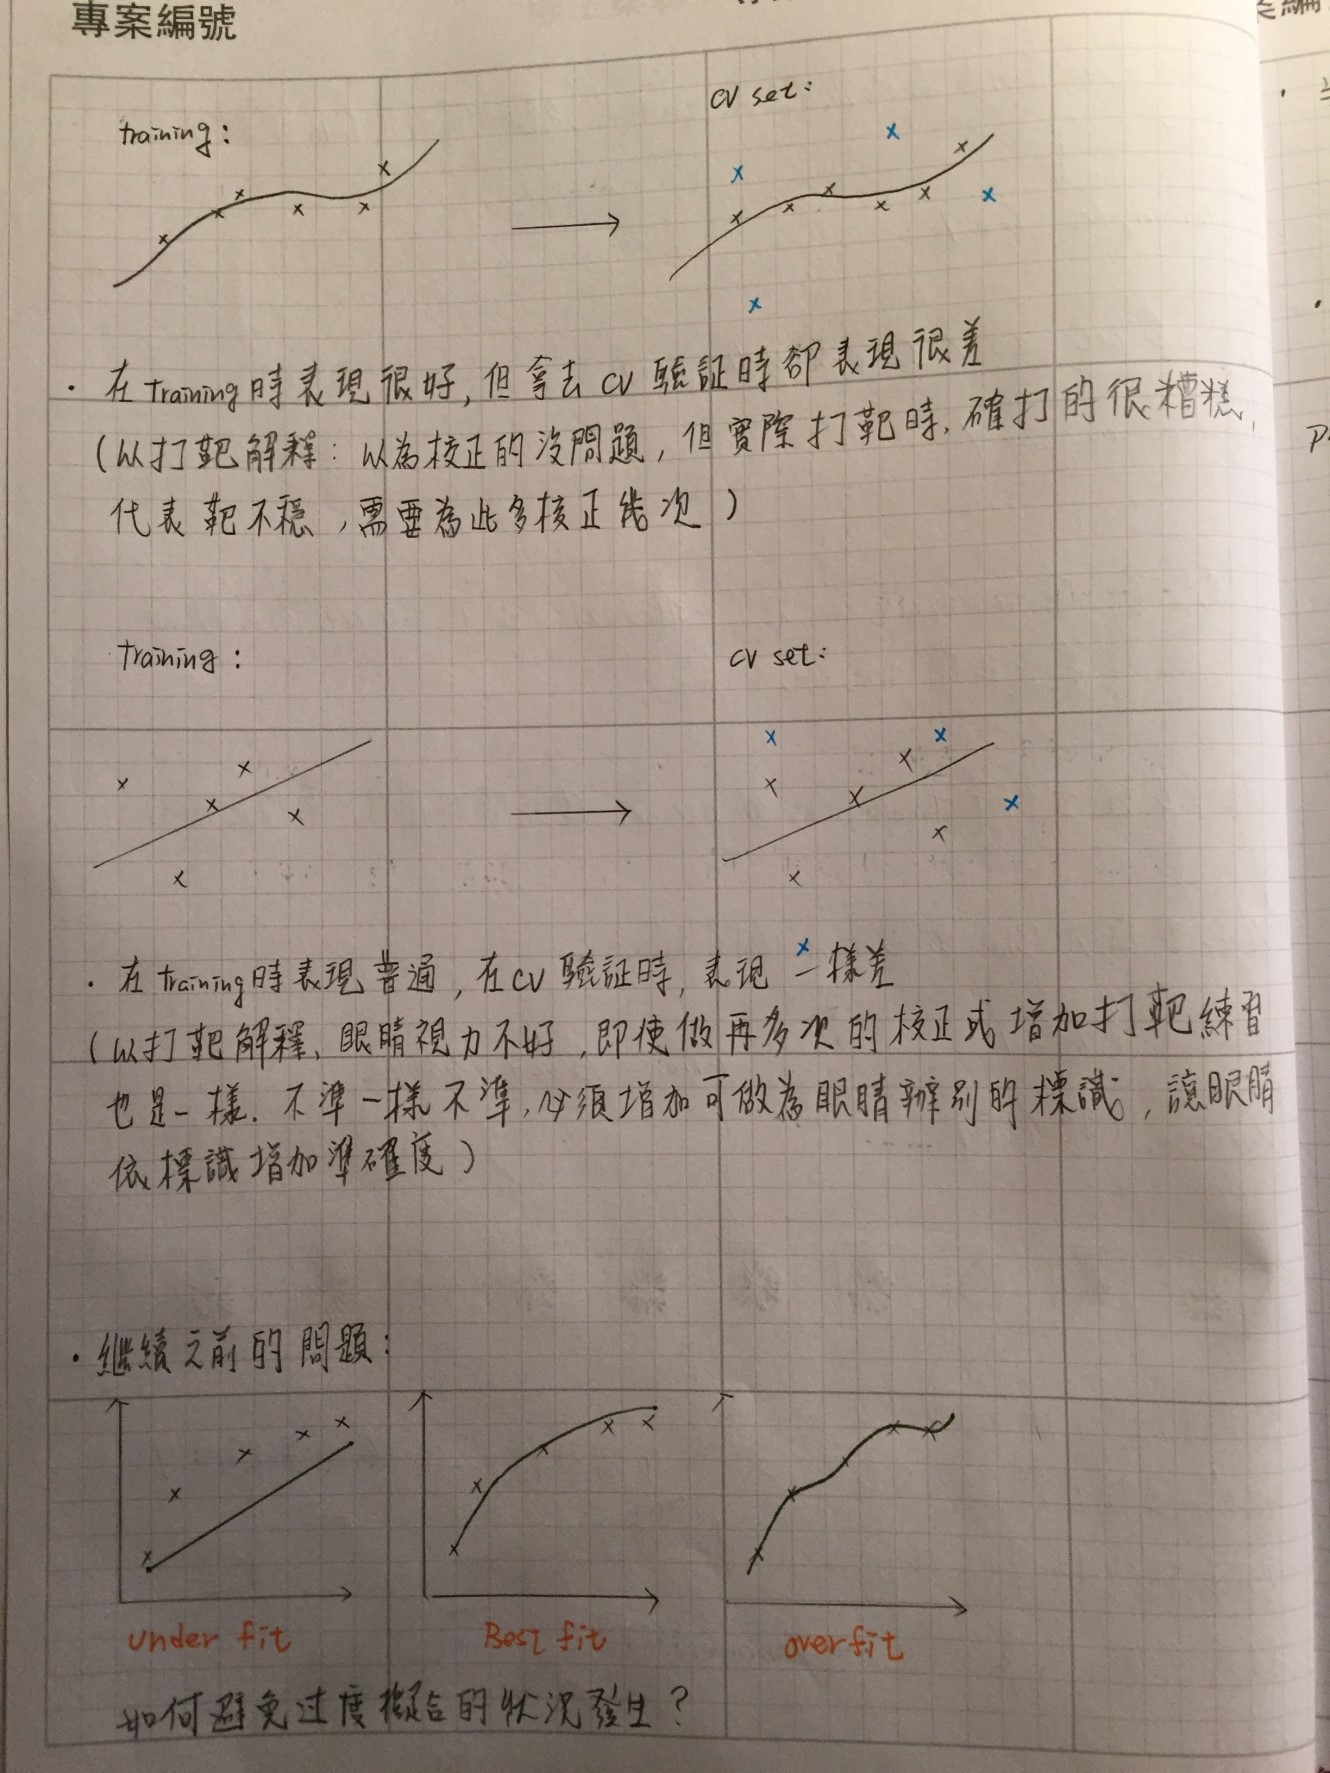 專案編號
training:
cv set:
·在training時表現很好,但拿去cv驗証時卻表現很差
(以打靶解釋:以為校正的沒問題,但實際打靶時,確打的很糟糕,
代表靶不穩,需要為此多校正幾次)
training:
cv set:
·在training時表現普通,在cv驗証時,表現一樣差
(以打靶解釋、眼睛視力不好,即使做再多次的校正或增加打靶練習
也是一樣.不準一樣不準,必須增加可做為眼睛辦別的標識,讓眼睛
依標識增加準確度)
·繼續之前的問題:
under fit
Best fit
overfit
如何避免过度擬合的狀況發生?